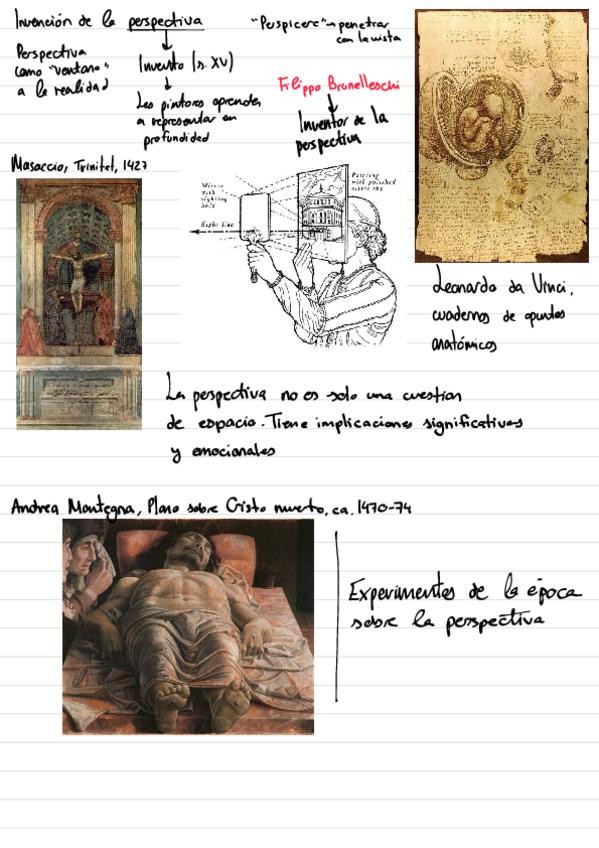 Invención de la perspectiva
"Perspicere" → penetrar
con la vista
Perspectiva
como "ventana"
a la realidad
Invento (s. XV)
Los pintores aprenden
a representar en
profundidad
Filippo Brunelleschi
Inventor de la
perspectiva
Masaccio, Trinitat, 1427
Mirror
with
sighting
hole
Painting
with polished
silver sky
Sight line
Leonardo da Vinci,
cuadernos de apuntes
anatómicos
La perspectiva no es solo una cuestion
de espacio. Tiene implicaciones significativas
y emocionales
Andrea Mantegna, Plano sobre Cristo muerto, ca. 1470-74
Experimentos de la época
sobre la perspectiva